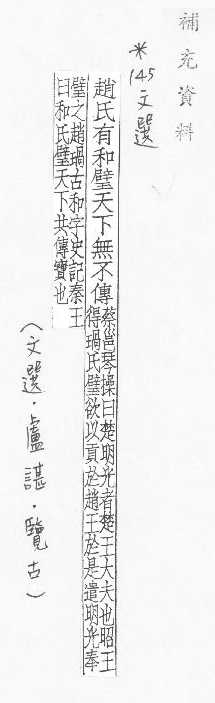 補充資料
*145文選
趙氏有和璧天下無不傳蔡邕琴操曰楚明光者楚王大夫也昭王
得瑦氏璧欲以貢於趙王於是遣明光奉
璧之趙瑦古和字史記秦王
曰和氏璧天下共傳寶也
(文選·盧諶·覽古)